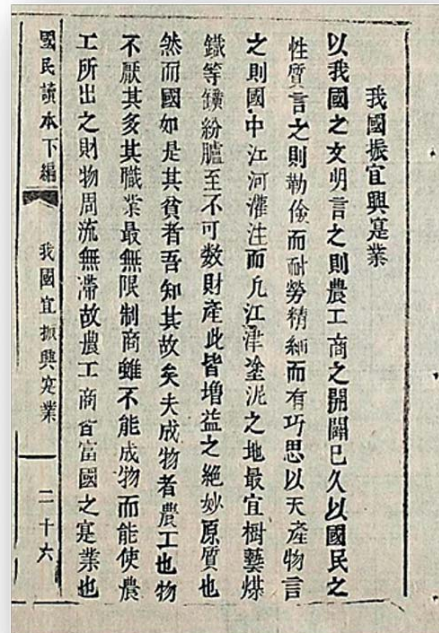 我國振宜興寔業
以我國之文明言之則農工商之開闢已久以國民之
性質言之則勤儉而耐勞精細而有巧思以天產物言
之則國中江河灌注而凡江津塗泥之地最宜樹藝煤
鐵等鑛紛臚至不可數財產此皆增益之絶妙原質也
然而國如是其貧者吾知其故矣夫成物者農工也物
不厭其多其職業最無限制商雖不能成物而能使農
工所出之財物周流無滯故農工商皆富國之寔業也
國民讀本下編 我國宜振興寔業 二十六